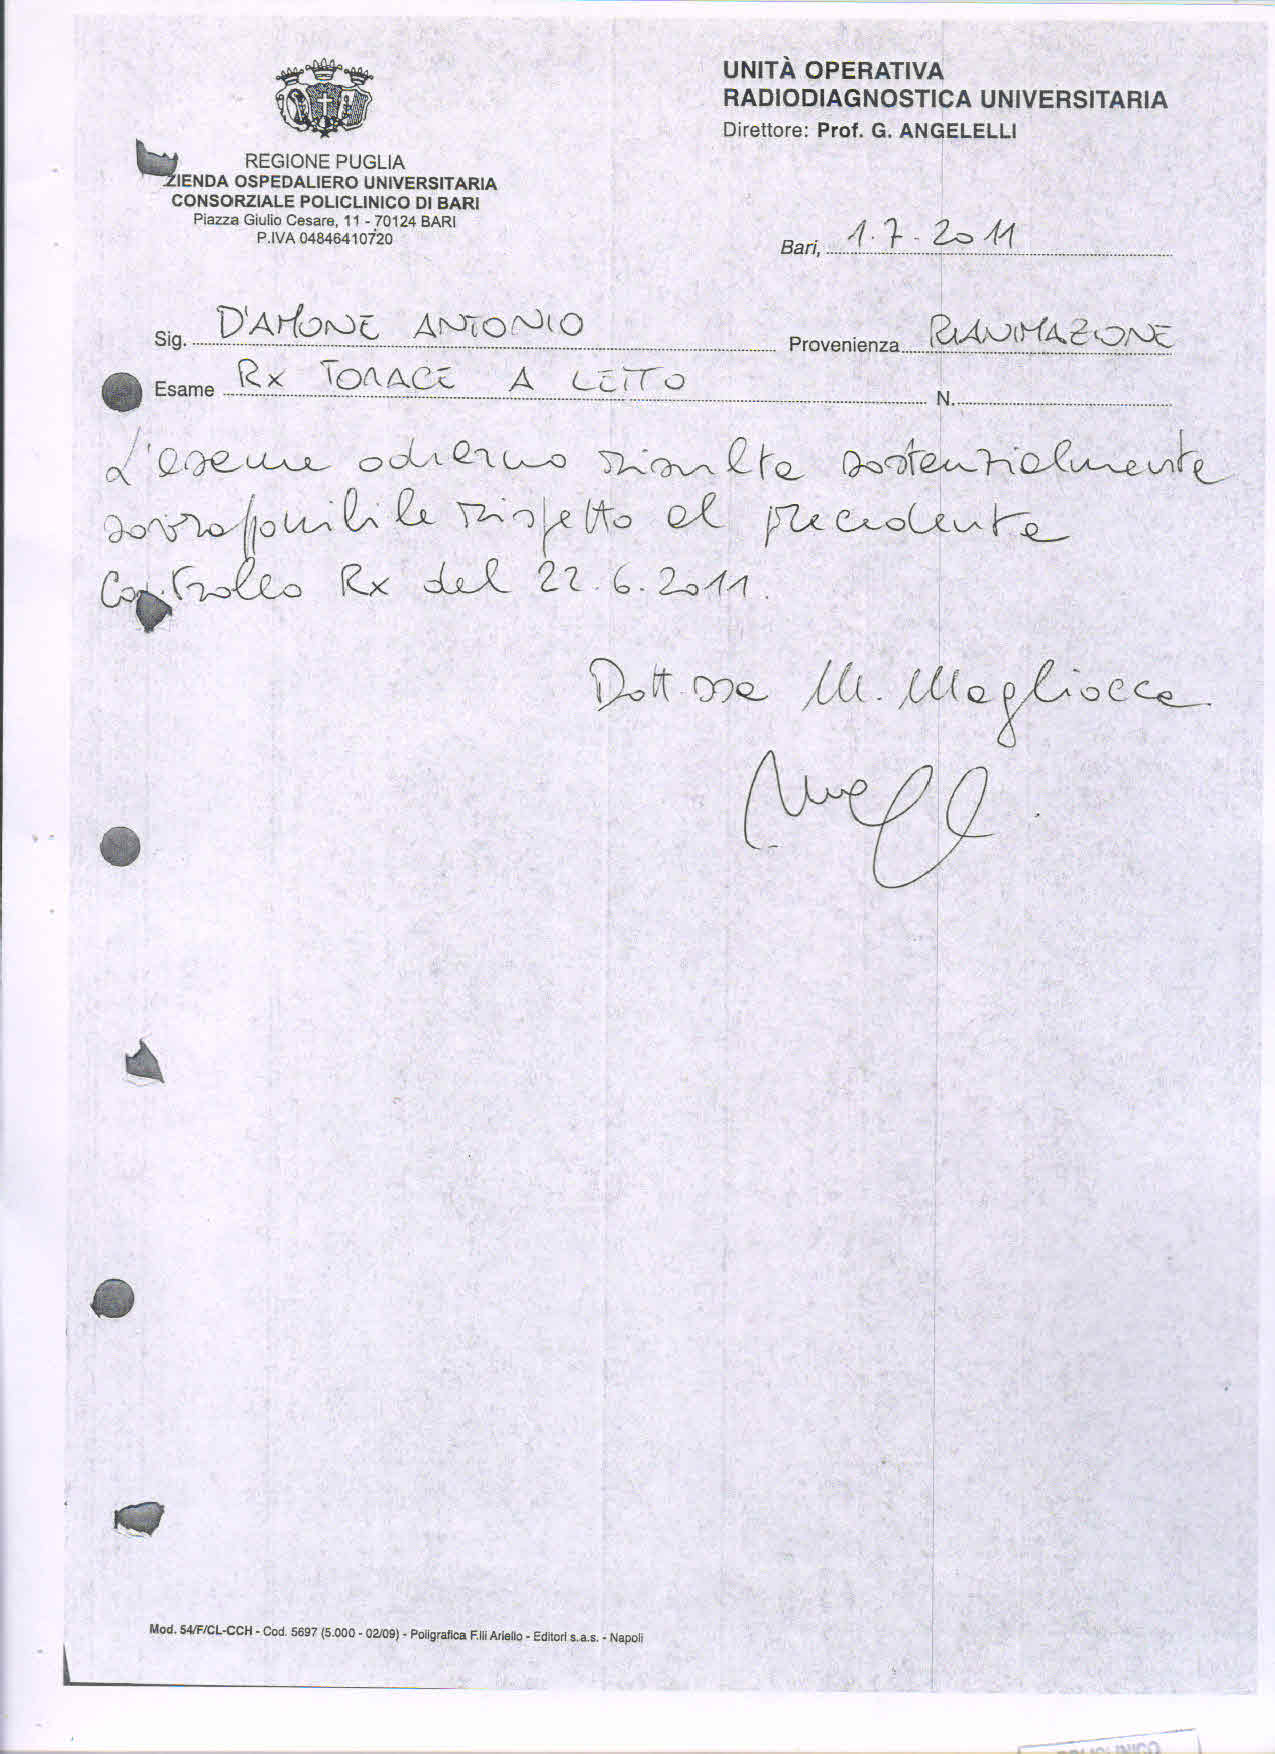 REGIONE PUGLIA
ZIENDA OSPEDALIERO UNIVERSITARIA
CONSORZIALE POLICLINICO DI BARI
Piazza Giulio Cesare, 11 - 70124 BARI
P.IVA 04846410720
UNITÀ OPERATIVA
RADIODIAGNOSTICA UNIVERSITARIA
Direttore: Prof. G. ANGELELLI
Bari, 1.7.2011
Sig. D'AMONE ANTONIO Provenienza RIANIMAZIONE
Esame RX TORACE A LETTO N.
L'esame odierno risulta sostanzialmente
sovrapponibile rispetto al precedente
Controllo Rx del 22.6.2011.
Dott.ssa M. Magliocca
Mod. 54/F/CL-CCH - Cod. 5697 (5.000 - 02/09) - Poligrafica F.lli Ariello - Editori s.a.s. - Napoli